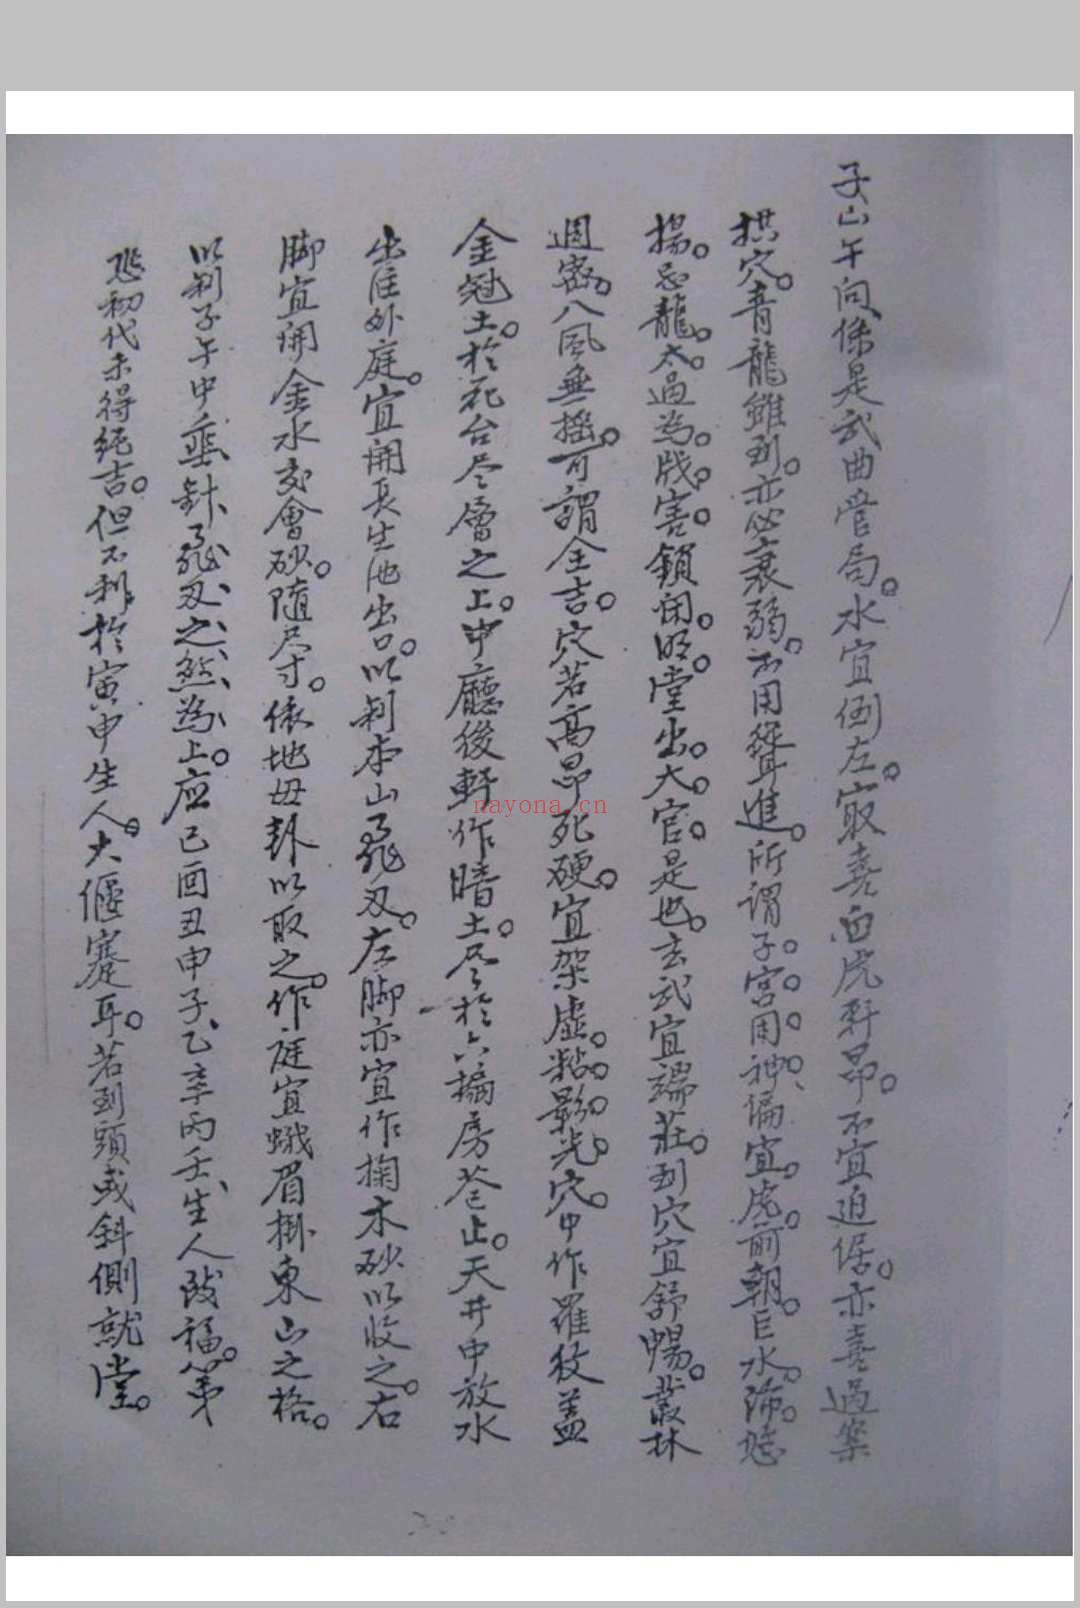 子山午向係是武曲管局。水宜倒左。最喜白虎軒昂。不宜迫倨。亦喜過案
拱穴。青龍雖到。亦必衰弱。不用聳進。所谓子宮用神、偏宜。虎前朝。巨水。沛。
揚。忌龍。太。過為。戕。害。鎖闭。明。堂出。大。官。是也。玄武宜端莊。到穴宜舒暢。叢林
週密。八風無摇。可謂全吉。穴若高昂死硬。宜架虚。粘。影。光。穴。中作羅紋盖
金冠土。於死台尽層之上。中廳後軒作暗土。尽於六
房
止。天井中放水
出注外庭。宜開長生池出口。以制本山
刃。左脚亦宜作掬木砂以收之。右
脚宜開金水交會砂。隨尺寸。依地母卦以取之。作庭宜蛾眉掛東山之格。
以制子午中
針
刃、之、煞、為、上。应巳酉丑申子、乙辛丙壬、生人
福。第
初代未得純吉。但不利於寅申生人。大偃蹇耳。若到頭或斜側就堂。
nayona.cn